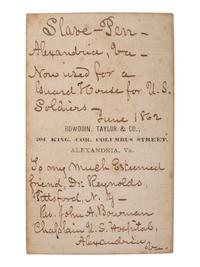 Slave-Pen-
Alexandria, Va-
Now used for a
Guard House for U.S.
Soldiers-
June 1862
BOWDOIN, TAYLOR & CO.,
204 KING, COR. COLUMBUS STREET,
ALEXANDRIA, Va.
To my much Esteemed
friend, Dr. Reynolds,
Pittsford, N.Y-
Rev. John A. Bowman
Chaplain U.S. Hospital,
Alexandria
Va.